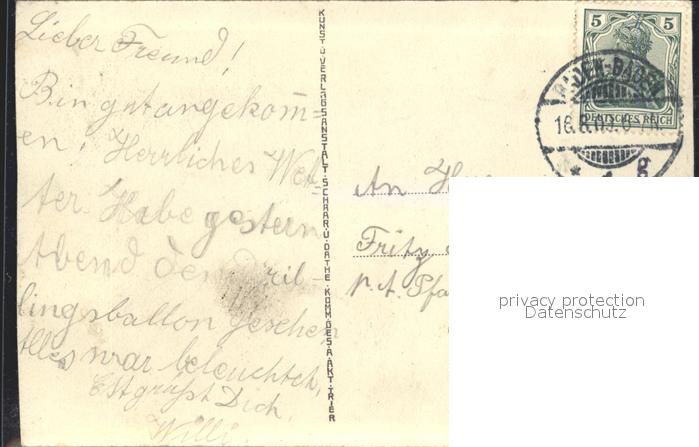 Lieber Freund!
Bin gut angekom-
en! Herrliches Wet-
ter. Habe gestern
Abend den Dril-
lingsballon gesehen
Alles war beleuchtet,
Es grüßt Dich
Willi.
KUNST U. VERLAGSANSTALT SCHAAR U. DATHE KOMM. GES. A. AKT. TRIER
5 5
DEUTSCHES REICH
BADEN-BADEN
16.8.
* 1 g
An
Fritz
p. A.
privacy protection
Datenschutz